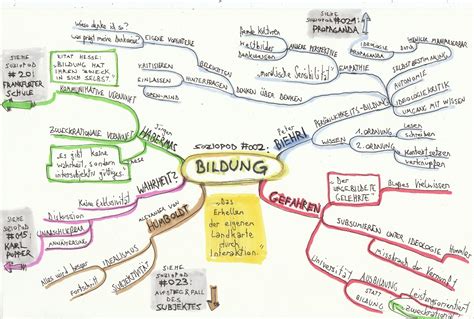 SIEHE
SOZIOPOD
#020:
FRANKFURTER
SCHULE
ZITAT HESSE:
"BILDUNG HAT
IHREN ZWECK
IN SICH SELBST"
Wieso denke ich so?
EIGENE VORURTEILE
KRITISIEREN
EINLASSEN
OPEN-MIND
REFLEKTION
HINTERFRAGEN
DENKEN ÜBER DENKEN
fremde Kulturen
Weltbilder
Denkweisen
ANDERE PERSPEKTIVE
"moralische Sensibilität"
EMPATHIE
SIEHE
SOZIOPOD
#024:
PROPAGANDA
IDEOLOGIE
PROPAGANDA
WENIGER MANIPULIERBAR
SELBSTBESTIMMUNG
AUTONOMIE
IDEOLOGIEKRITIK
UMGANG MIT WISSEN
PERSÖNLICHKEITS-BILDUNG
WISSEN
1. ORDNUNG
lesen
schreiben
2. ORDNUNG
in Kontext setzen
verknüpfen
KOMMUNIKATIVE VERNUNFT
ZWECKRATIONALE VERNUNFT
Jürgen
HABERMAS
"es gibt keine
Wahrheit, sondern
intersubjektiv gültiges"
SOZIOPOD #002:
BILDUNG
Peter
BIERI
WAHRHEIT?
Keine Exklusivität
Diskursion
ANNÄHERUNG
SIEHE
SOZIOPOD
#015:
KARL
POPPER
ALEXANDER VON
HUMBOLDT
IDEALISMUS
Alles wird besser
Fortschritt
SUBJEKTIVITÄT
SIEHE
SOZIOPOD
#023:
AUFSTIEG & FALL
DES
SUBJEKTES
"Das
Erhellen
der eigenen
Landkarte
durch
Interaktion."
GEFAHREN
"Der
UNGEBILDETE
GELEHRTE"
Bloßes Vielwissen
SUBSUMIEREN UNTER IDEOLOGIE
Himmler
missbrauch der Vernunft
Universität
AUSBILDUNG
STATT
BILDUNG
Leistungsorientiert
zweckrational